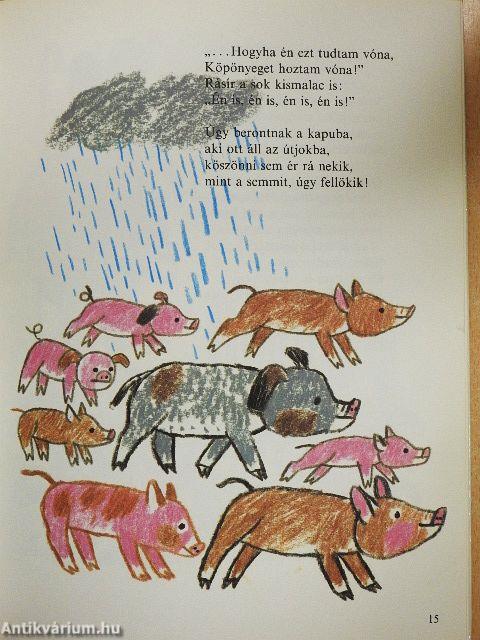 „...Hogyha én ezt tudtam vóna,
Köpönyeget hoztam vóna!”
Rásír a sok kismalac is:
„Én is, én is, én is, én is!”
Úgy berontnak a kapuba,
aki ott áll az útjokba,
köszönni sem ér rá nekik,
mint a semmit, úgy fellökik!
15
Antikvárium.hu